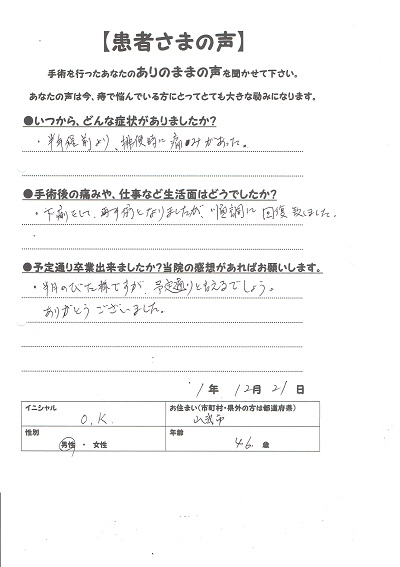 【患者さまの声】
手術を行ったあなたのありのままの声を聞かせて下さい。
あなたの声は今、痔で悩んでいる方にとってとても大きな励みになります。
●いつから、どんな症状がありましたか?
・半年程前より、排便時に痛みがあった。
●手術後の痛みや、仕事など生活面はどうでしたか?
・下痢をして、再手術となりましたが、順調に回復致しました。
●予定通り卒業出来ましたか?当院の感想があればお願いします。
・半月のびた様ですが、予定通りと言えるでしょう。
ありがとうございました。
1年 12月 21日
イニシャル
O.K.
お住まい(市町村・県外の方は都道府県)
山武市
性別
男性 ・ 女性
年齢
46 歳